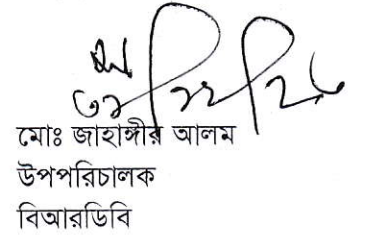 মোঃ জাহাঙ্গীর আলম
উপপরিচালক
বিআরডিবি